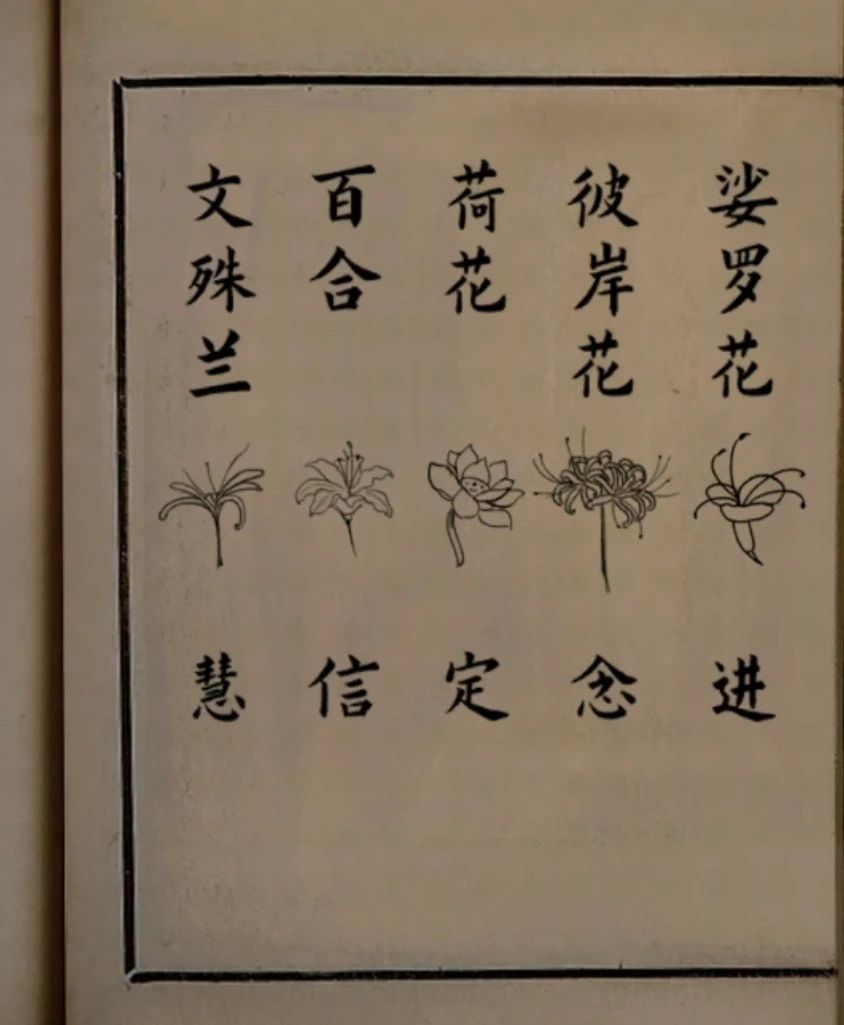 娑罗花
进
彼岸花
念
荷花
定
百合
信
文殊兰
慧